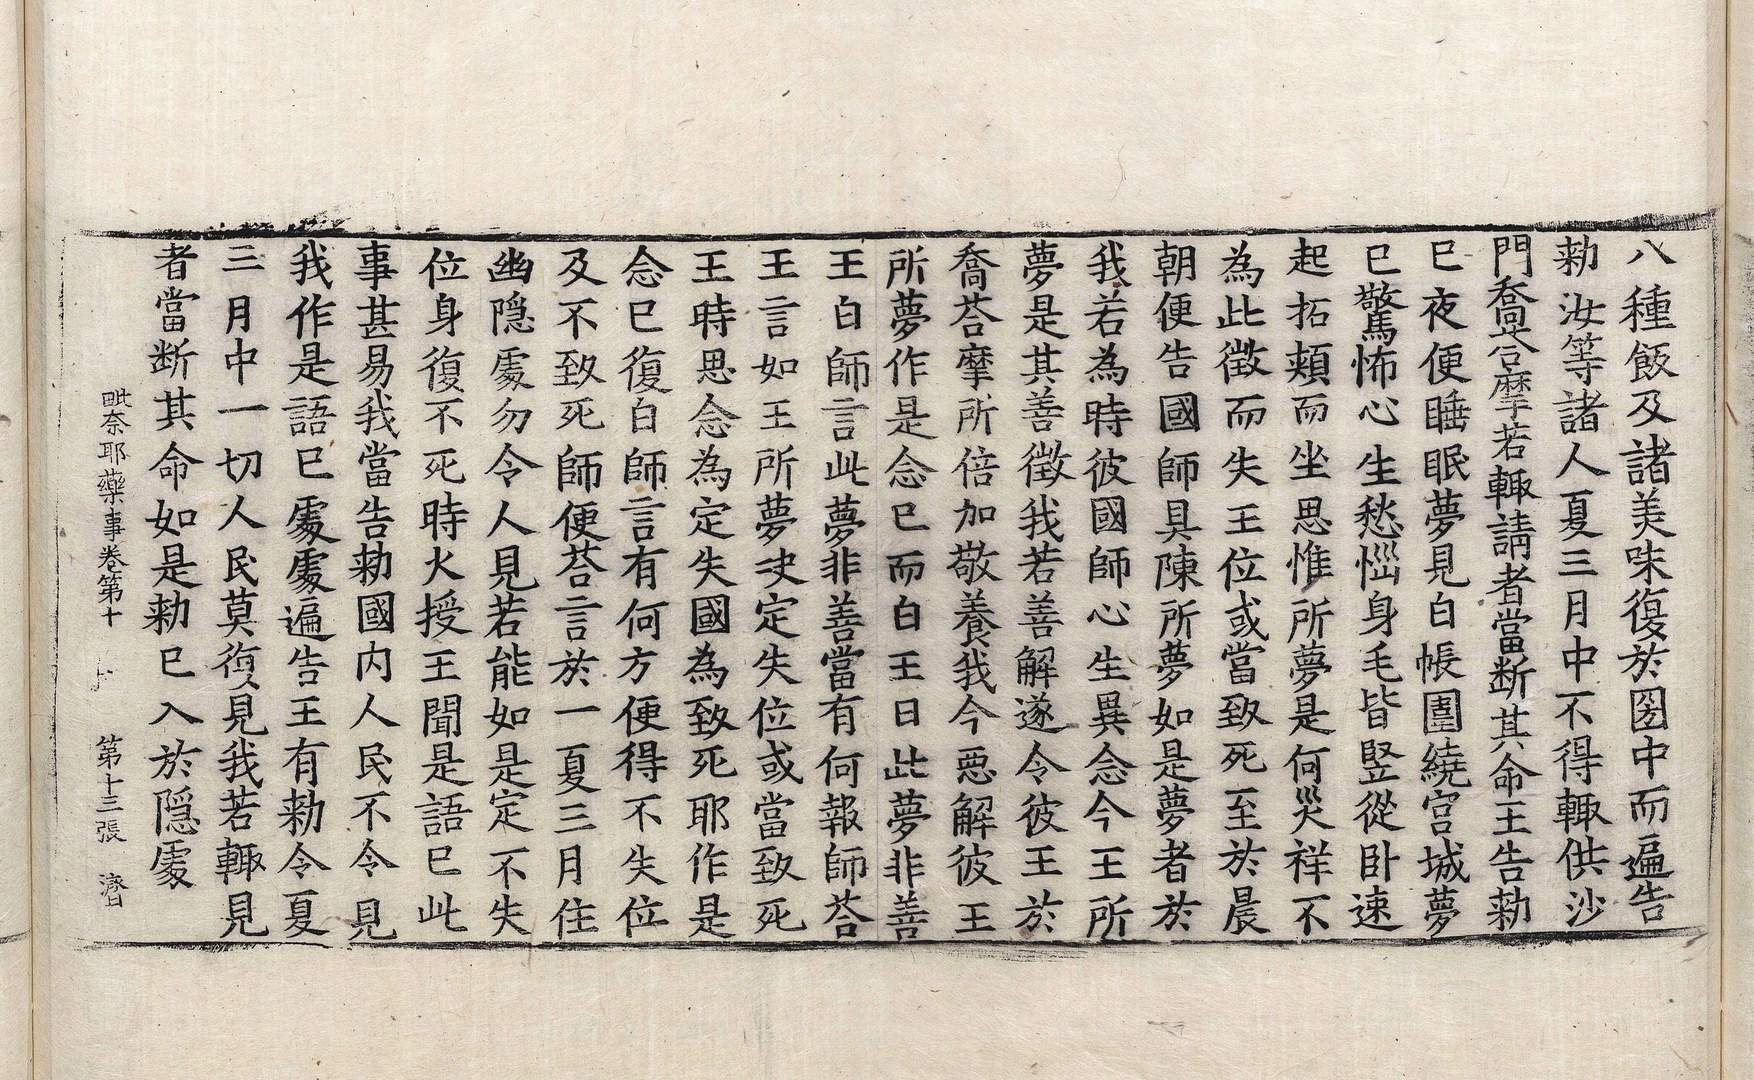 八種飯及諸美味復於園中而遍告
勑汝等諸人夏三月中不得輙供沙
門喬荅摩若輙請者當斷其命王告勑
已夜便睡眠夢見白帳圍繞宮城夢
已驚怖心生愁惱身毛皆竪從卧速
起拓頬而坐思惟所夢是何災祥不
為此徵而失王位或當致死至於晨
朝便告國師具陳所夢如是夢者於
我若為時彼國師心生異念今王所
夢是其善徵我若善解遂令彼王於
喬荅摩所倍加敬養我今惡解彼王
所夢作是念已而白王曰此夢非善
王白師言此夢非善當有何報師荅
王言如王所夢決定失位或當致死
王時思念為定失國為致死耶作是
念已復白師言有何方便得不失位
及不致死師便荅言於一夏三月住
幽隱處勿令人見若能如是定不失
位身復不死時火授王聞是語已此
事甚易我當告勑國内人民不令見
我作是語已處處遍告王有勑令夏
三月中一切人民莫復見我若輙見
者當斷其命如是勑已入於隱處
毗奈耶藥事卷第十 第十三張 濟